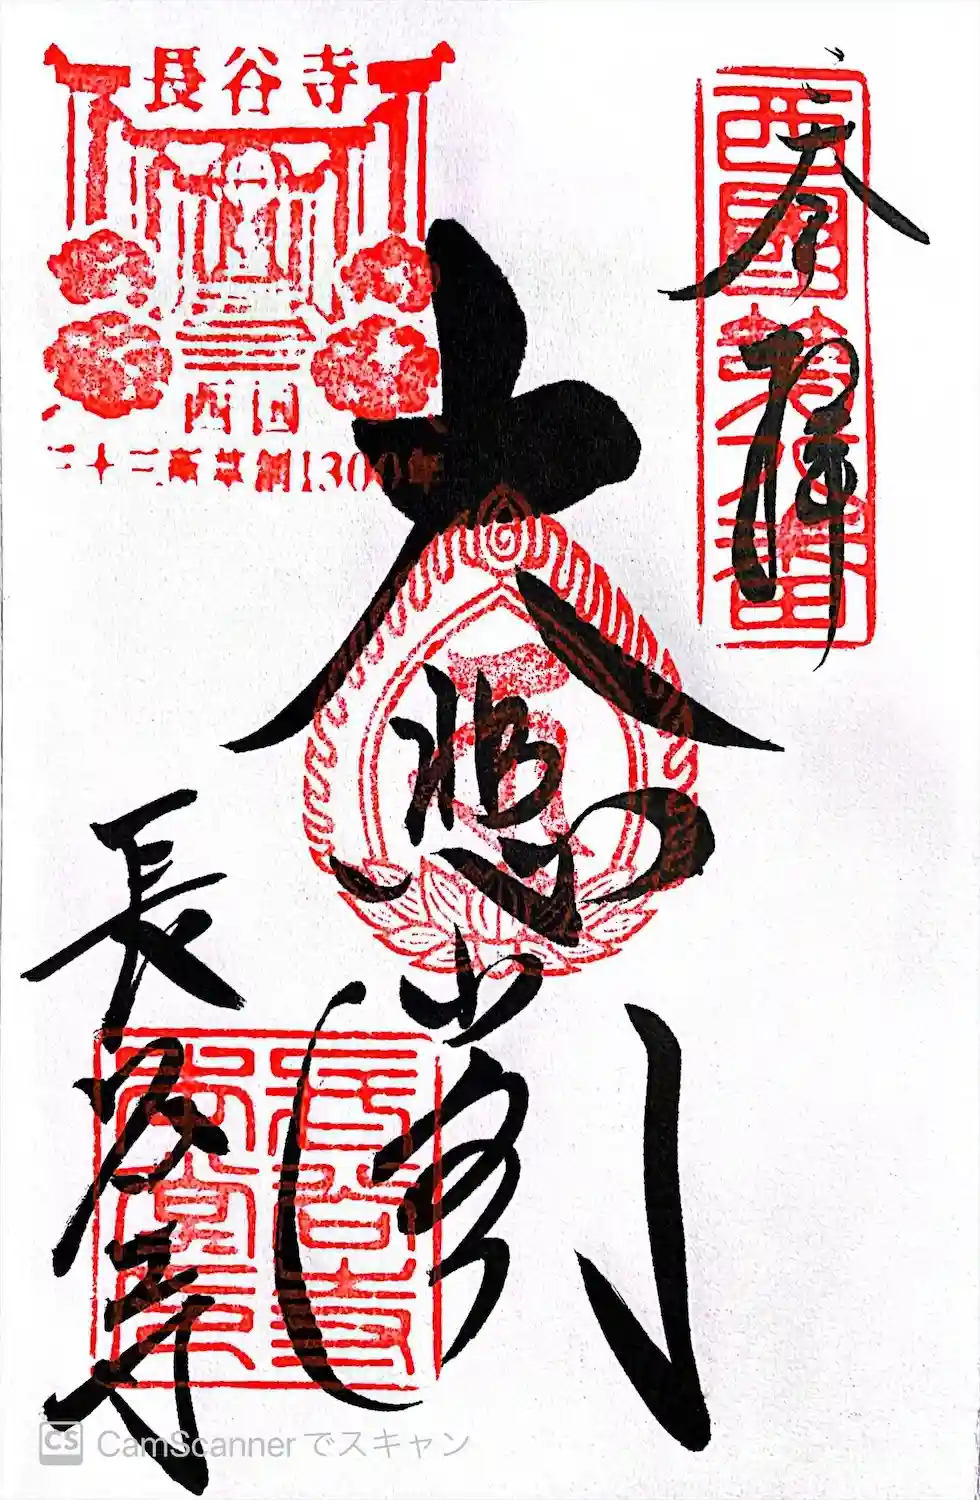 奉拝
西國第八番
大悲閣
長谷寺
長谷寺
西国
三十三所草創1300年
長谷寺
CS CamScanner でスキャン